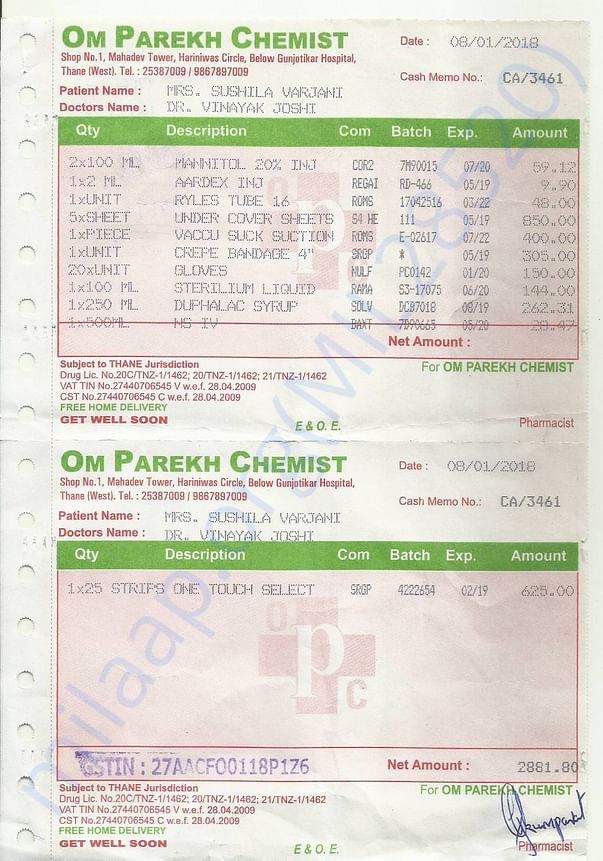 OM PAREKH CHEMIST
Date : 08/01/2018
Shop No.1, Mahadev Tower, Hariniwas Circle, Below Gunjotikar Hospital,
Thane (West). Tel. : 25387009 / 9867897009
Cash Memo No.: CA/3461
Patient Name : MRS. SUSHILA VARJANI
Doctors Name : DR. VINAYAK JOSHI
Qty Description Com Batch Exp. Amount
2x100 ML MANNITOL 20% INJ COR2 7M90015 07/20 59.12
1x2 ML AARDEX INJ REGAI RD-466 05/19 9.90
1xUNIT RYLES TUBE 16 ROMS 17042516 03/22 48.00
5xSHEET UNDER COVER SHEETS S4 HE 111 05/19 850.00
1xPIECE VACCU SUCK SUCTION ROMS E-02617 07/22 400.00
1xUNIT CREPE BANDAGE 4" SRGP * 05/19 305.00
20xUNIT GLOVES NULF PC0142 01/20 150.00
1x100 ML STERILIUM LIQUID RAMA S3-17075 06/20 144.00
1x250 ML DUPHALAC SYRUP SOLV DCB7018 08/19 262.31
1x500ML NS IV DAXT 7D90665 05/20 28.47
Net Amount :
Subject to THANE Jurisdiction
For OM PAREKH CHEMIST
Drug Lic. No.20C/TNZ-1/1462; 20/TNZ-1/1462; 21/TNZ-1/1462
VAT TIN No.27440706545 V w.e.f. 28.04.2009
CST No.27440706545 C w.e.f. 28.04.2009
FREE HOME DELIVERY
GET WELL SOON
E & O. E.
Pharmacist
OM PAREKH CHEMIST
Date : 08/01/2018
Shop No.1, Mahadev Tower, Hariniwas Circle, Below Gunjotikar Hospital,
Thane (West). Tel. : 25387009 / 9867897009
Cash Memo No.: CA/3461
Patient Name : MRS. SUSHILA VARJANI
Doctors Name : DR. VINAYAK JOSHI
Qty Description Com Batch Exp. Amount
1x25 STRIPS ONE TOUCH SELECT SRGP 4222654 02/19 625.00
o p c
GSTIN : 27AACFO0118P1Z6
Net Amount : 2881.80
Subject to THANE Jurisdiction
For OM PAREKH CHEMIST
Drug Lic. No.20C/TNZ-1/1462; 20/TNZ-1/1462; 21/TNZ-1/1462
VAT TIN No.27440706545 V w.e.f. 28.04.2009
CST No.27440706545 C w.e.f. 28.04.2009
FREE HOME DELIVERY
GET WELL SOON
E & O. E.
Pharmacist